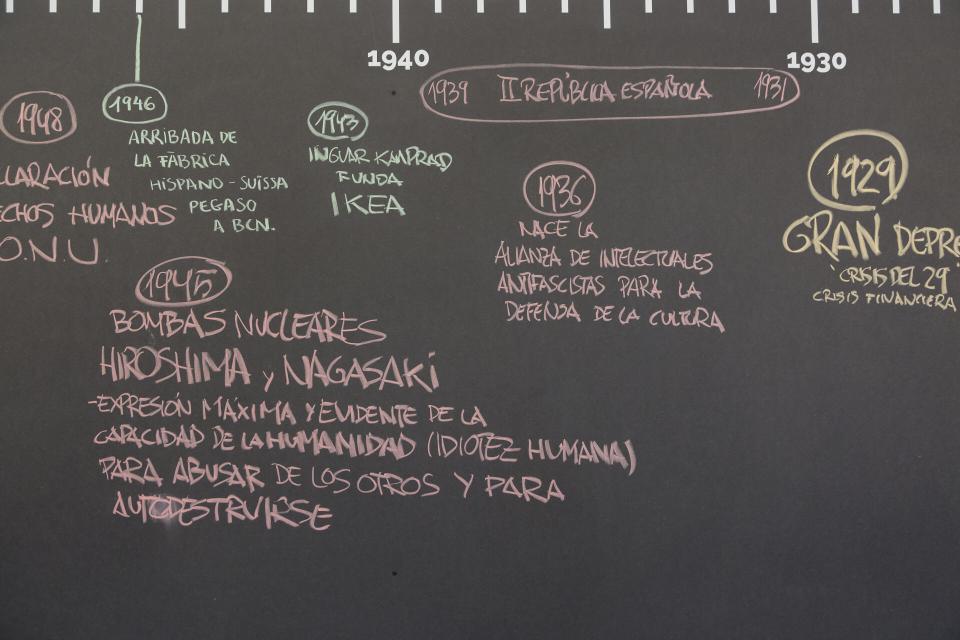 1940
1930
1939 II REPÚBLICA ESPAÑOLA 1931
1948
CLARACIÓN
ECHOS HUMANOS
O.N.U.
1946
ARRIBADA DE
LA FÀBRICA
HISPANO-SUÏSSA
PEGASO
A BCN.
1943
INGVAR KAMPRAD
FUNDA
IKEA
1936
NACE LA
ALIANZA DE INTELECTUALES
ANTIFASCISTAS PARA LA
DEFENSA DE LA CULTURA
1929
GRAN DEPRE
"CRISIS DEL 29"
CRISIS FINANCIERA
1945
BOMBAS NUCLEARES
HIROSHIMA y NAGASAKI
-EXPRESIÓN MÁXIMA Y EVIDENTE DE LA
CAPACIDAD DE LA HUMANIDAD (IDIOTEZ HUMANA)
PARA ABUSAR DE LOS OTROS Y PARA
AUTODESTRUIRSE